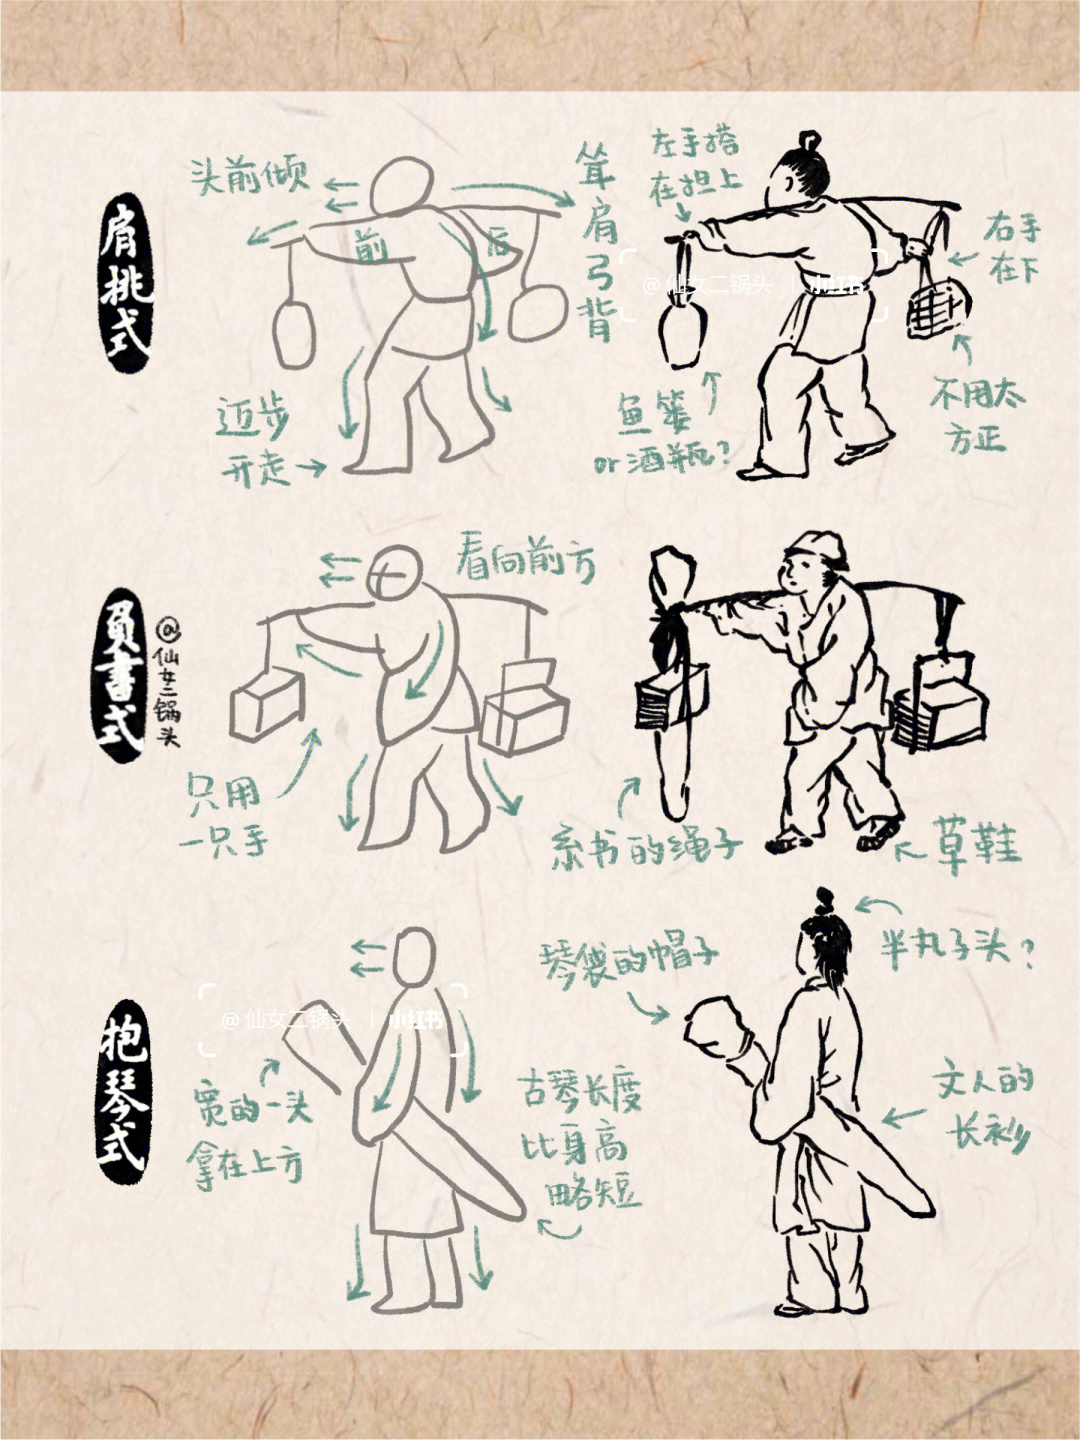 肩挑式
头前倾
前
后
耸肩弓背
左手搭
在担上
右手
在下
@仙女二锅头 | 小红书
迈步
开走
鱼篓
or酒瓶?
不用太
方正
負書式
@仙女二锅头
看向前方
只用
一只手
系书的绳子
草鞋
抱琴式
@仙女二锅头 | 小红书
宽的一头
拿在上方
古琴长度
比身高
略短
琴袋的帽子
半丸子头?
文人的
长衫